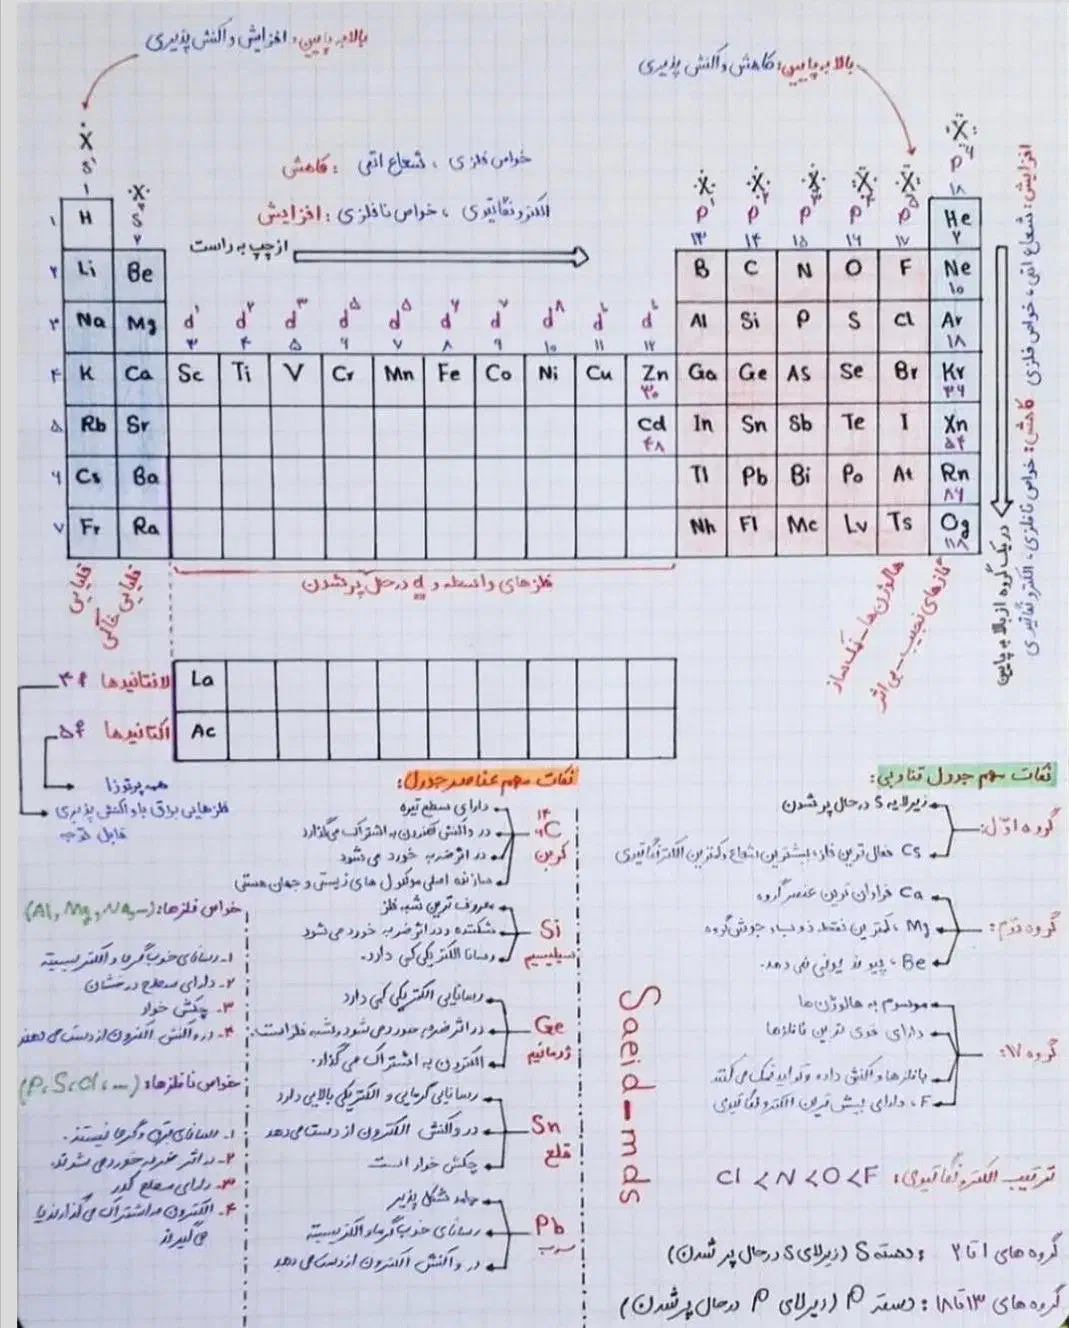 بالا به پایین: افزایش واکنش پذیری
بالا به پایین: کاهش واکنش پذیری
Ẋ
s¹
۱
·X·
s²
۲
کاهش: خواص فلزی، شعاع اتمی
افزایش: الکترونگاتیوی، خواص نافلزی
از چپ به راست
p¹ p² p³ p⁴ p⁵ p⁶
۱۳ ۱۴ ۱۵ ۱۶ ۱۷ ۱۸
۱ H He ۲
۲ Li Be B C N O F Ne ۱۰
d¹ d² d³ d⁵ d⁵ d⁶ d⁷ d⁸ d¹⁰ d¹⁰
۳ Na Mg Al Si P S Cl Ar ۱۸
۳ ۴ ۵ ۶ ۷ ۸ ۹ ۱۰ ۱۱ ۱۲
۴ K Ca Sc Ti V Cr Mn Fe Co Ni Cu Zn ۳۰ Ga Ge As Se Br Kr ۳۶
۵ Rb Sr Cd ۴۸ In Sn Sb Te I Xn ۵۴
۶ Cs Ba Tl Pb Bi Po At Rn ۸۶
۷ Fr Ra Nh Fl Mc Lv Ts Og ۱۱۸
قلیایی
قلیایی خاکی
فلزهای واسطه و d در حال پر شدن
هالوژن ها - نمک ساز
گازهای نجیب - بی اثر
در یک گروه از بالا به پایین
افزایش: شعاع اتمی، خواص فلزی کاهش: خواص نافلزی، الکترونگاتیوی
لانتانیدها ۴f La
اکتانیدها ۵f Ac
همه پرتوزا
فلزهایی براق با واکنش پذیری
قابل توجه
نکات مهم جدول تناوبی:
گروه اول:
زیرلایه s در حال پر شدن
Cs فعال ترین فلز، بیشترین شعاع و کمترین الکترونگاتیوی
گروه دوم:
Ca فراوان ترین عنصر گروه
Mg، کمترین نقطه ذوب و جوش گروه
Be، پیوند یونی نمی دهد.
گروه ۱۷:
موسوم به هالوژن ها
دارای قوی ترین نافلزها
با فلزها واکنش داده و تولید نمک می کنند
F، دارای بیش ترین الکترونگاتیوی
ترتیب الکترونگاتیوی: Cl < N < O < F
گروه های ۱ تا ۲: دسته s (زیرلای s در حال پر شدن)
گروه های ۱۳ تا ۱۸: دسته p (زیرلای p در حال پر شدن)
Saeid-mds
نکات مهم عناصر جدول:
C
کربن
دارای سطح تیره
در واکنش الکترون به اشتراک می گذارد
در اثر ضربه خورد می شود
سازنده اصلی مولکول های زیستی و جهان هستی
Si
سیلیسیم
معروف ترین شبه فلز
شکننده و در اثر ضربه خورد می شود
رسانا الکتریکی کمی دارد.
Ge
ژرمانیم
رسانایی الکتریکی کمی دارد
در اثر ضربه خورد می شود و شبه فلز است.
الکترون به اشتراک می گذارد.
Sn
قلع
رسانایی گرمایی و الکتریکی بالایی دارد
در واکنش الکترون از دست می دهد
چکش خوار است
Pb
سرب
جامد شکل پذیر
رسانای خوب گرما و الکتریسیته
در واکنش الکترون از دست می دهد
خواص فلزها: (Al, Mg, Na, ...)
۱- رسانای خوب گرما و الکتریسیته
۲- دارای سطح درخشان
۳- چکش خوار
۴- در واکنش الکترون از دست می دهند
خواص نافلزها: (P, S, Cl, ...)
۱- رسانای برق و گرما نیستند.
۲- در اثر ضربه خورد می شوند.
۳- دارای سطح کدر
۴- الکترون به اشتراک می گذارند یا
می گیرند